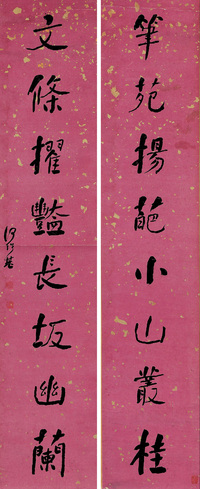 筆苑揚葩小山叢桂
文條擢豔長坂幽蘭